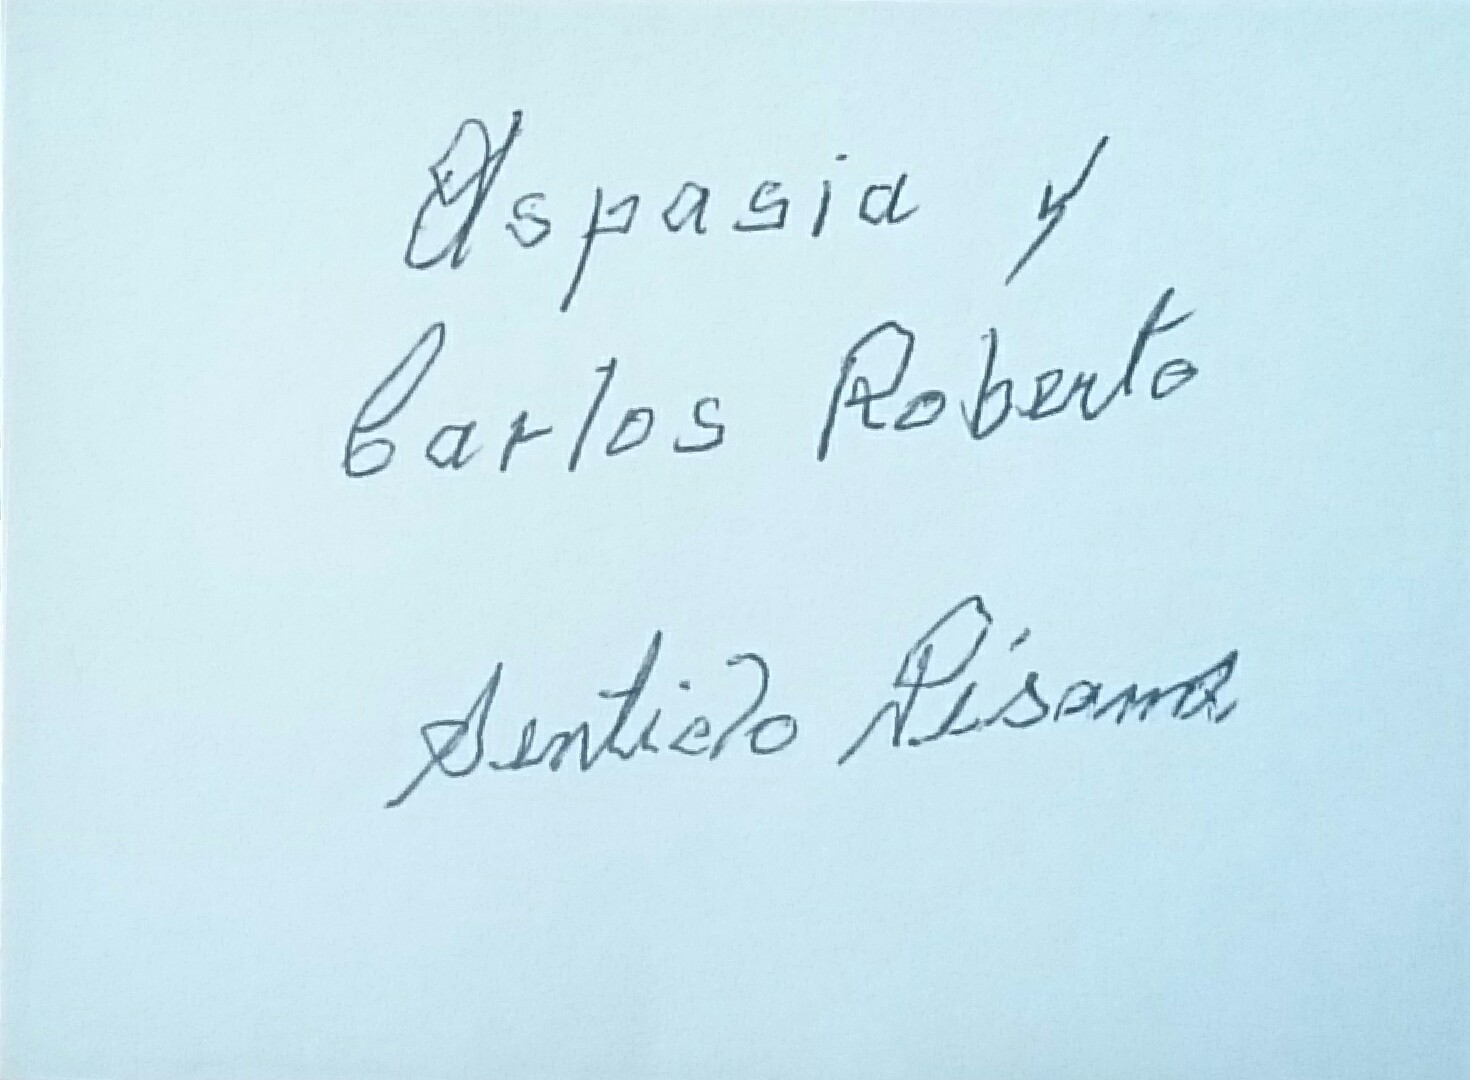 Aspasia y
Carlos Roberto
Sentido Pésame